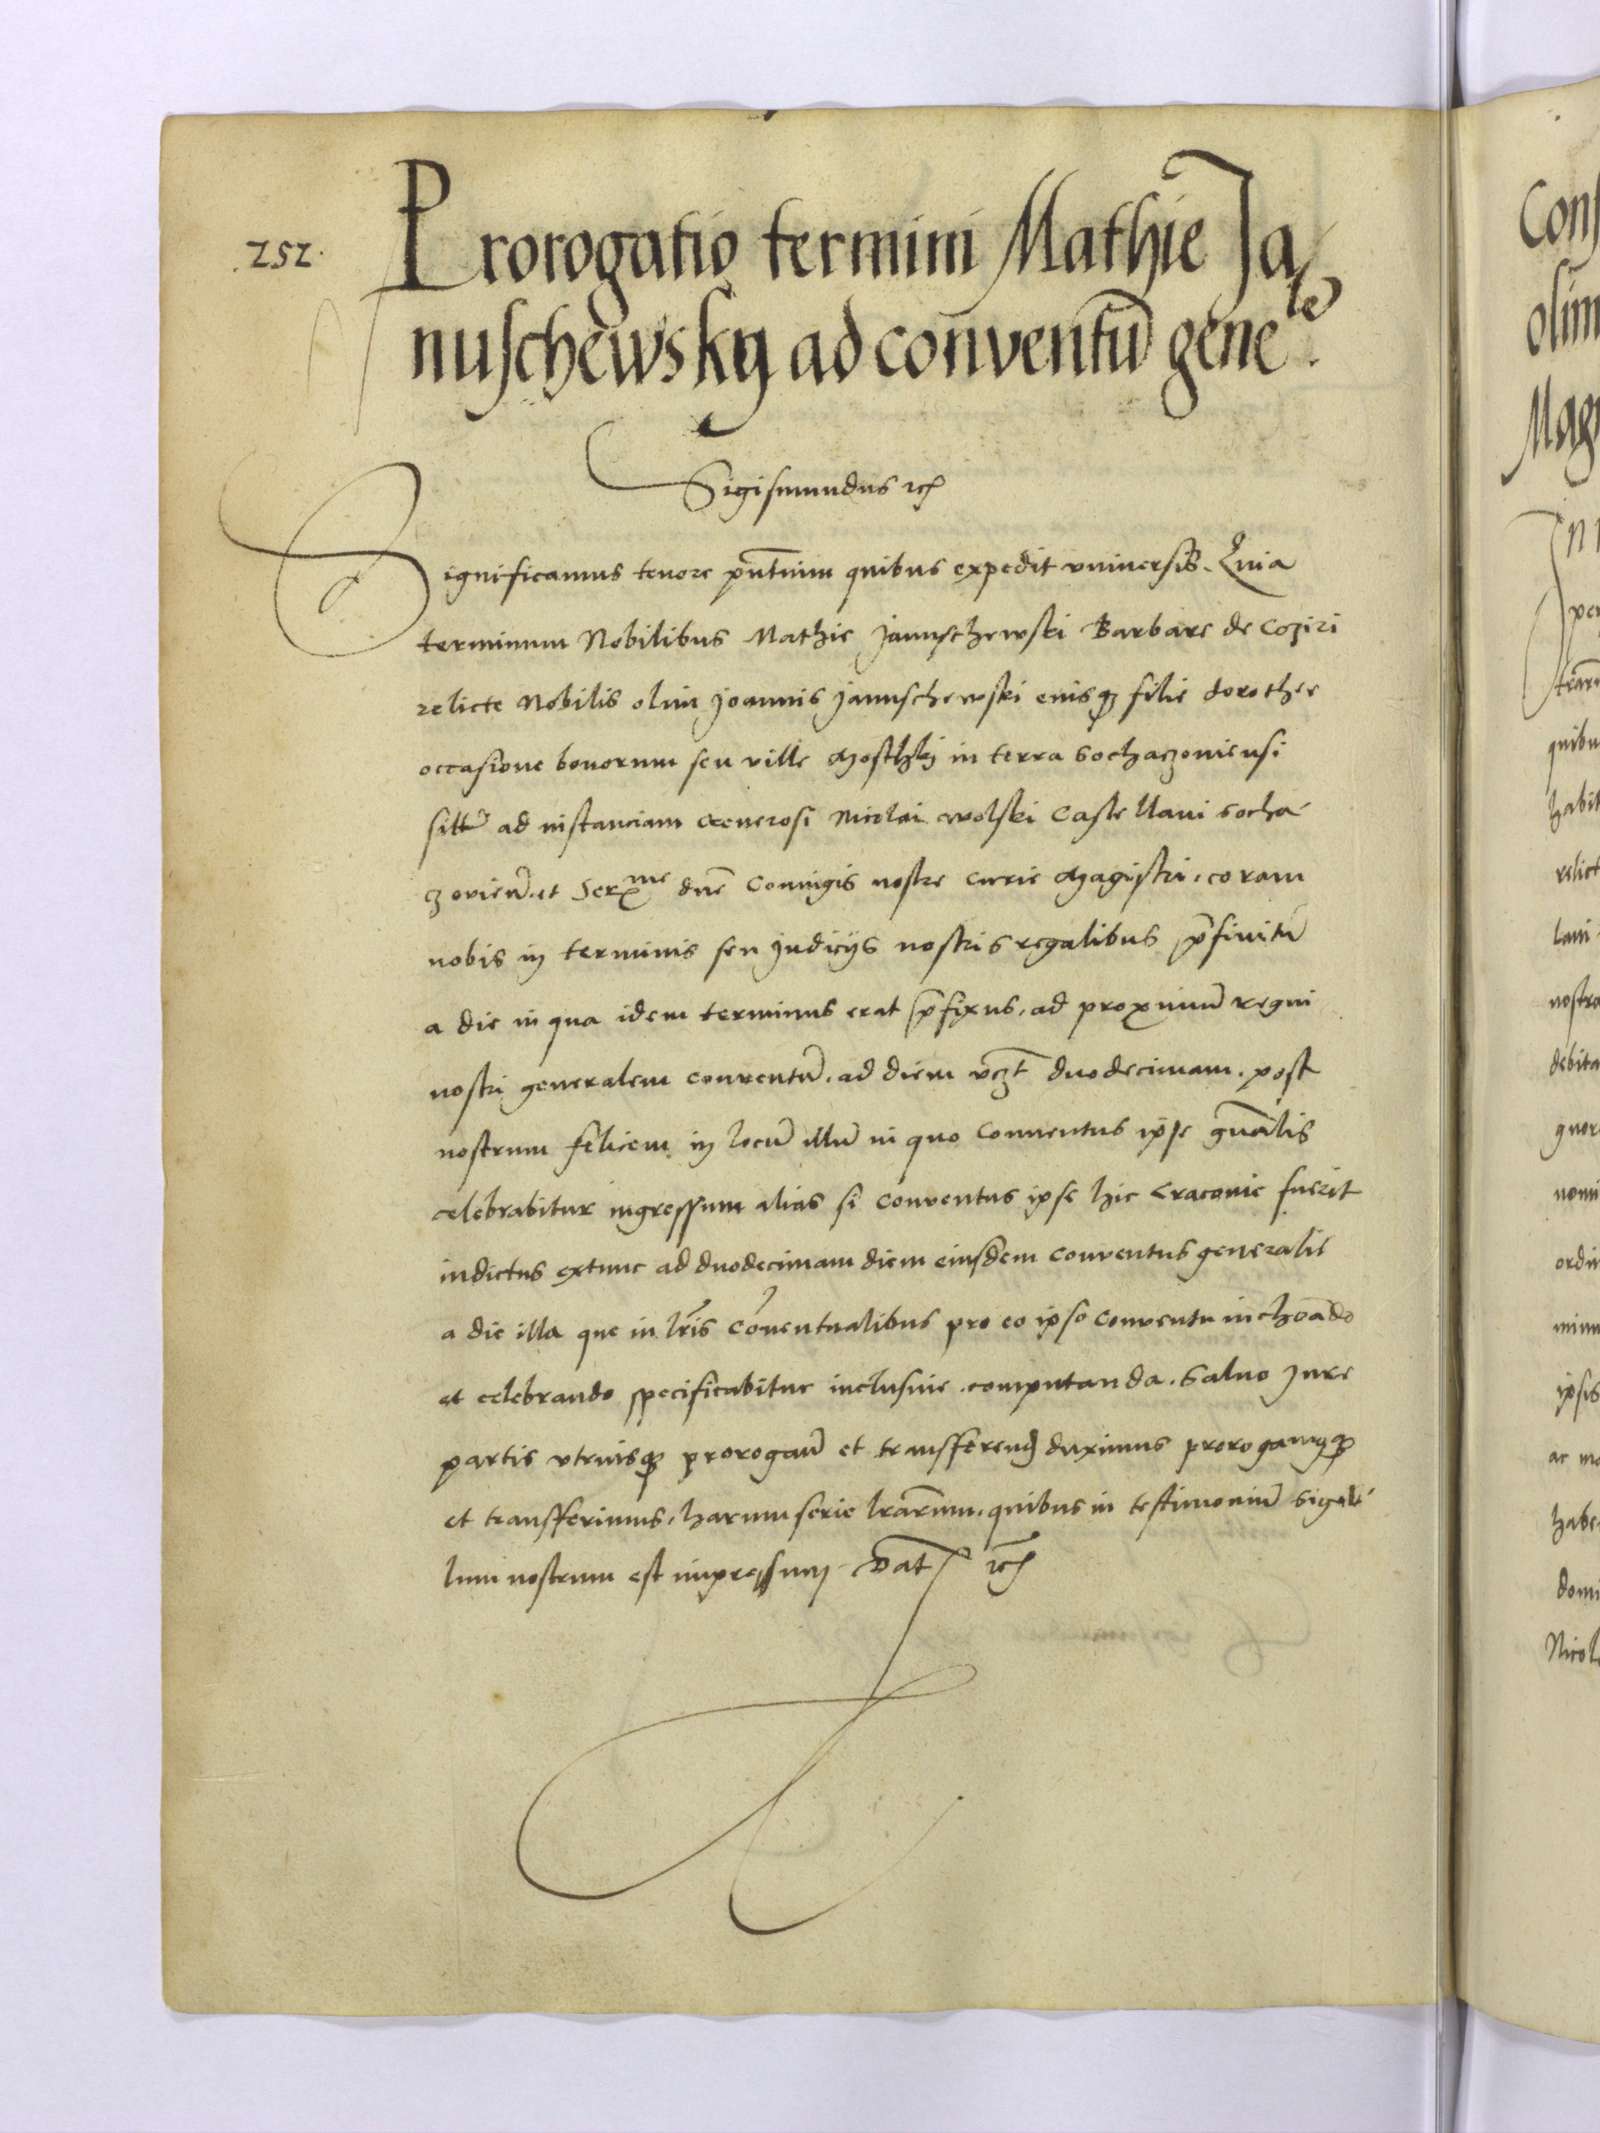 252.
Prorogatio termini Mathie Ja
nuschewsky ad conventu̅ gene le.
Sigismundus etc
Significamus tenore pn̅tium quibus expedit vniuersis. Quia
terminum Nobilibus Mathie Januschewski Barbare de Coziri
relicte Nobilis olim Joannis Januschewski eiusq3 filie dorothee
occasione bonorum seu ville in terra Sochaczoviensi
ad instanciam Generosi Nicolai Wolski Castellani Socha
czovien̅. et Ser me dn̅e Coniugis nostre curie Magistri. coram
nobis in terminis seu Judicijs nostris regalibus p̅finitu̅
a die in qua idem terminus erat p̅fixus. ad proximu̅ regni
nostri generalem conventu̅. ad diem vczt̅ duodecimam. post
nostrum felicem in locu̅ illu̅ in quo Conuentus ipse gn̅alis
celebrabitur ingressum alias si conventus ipse hic Cracovie fuerit
indictus extunc ad duodecimam diem eiusdem conventus generalis
a die illa que in lr̅is co̅uentualibus pro eo ipso conventu inchoa̅do
et celebrando specificabitur inclusiue. computanda. Saluo Jure
partis vtriusq3 prorogan̅ et transferend duximus prorogamusq3
et transferimus. harum serie lrar̅um. quibus in testimoniu̅ Sigil
lum nostrum est impressum. Dat̅ etc
Cons
olim
Mag
In
per
quibu
habit
relict
lani
nostra
debita
gner
nomi
ordin
minu
ipsis
ac mo
habe
domi
Nicol